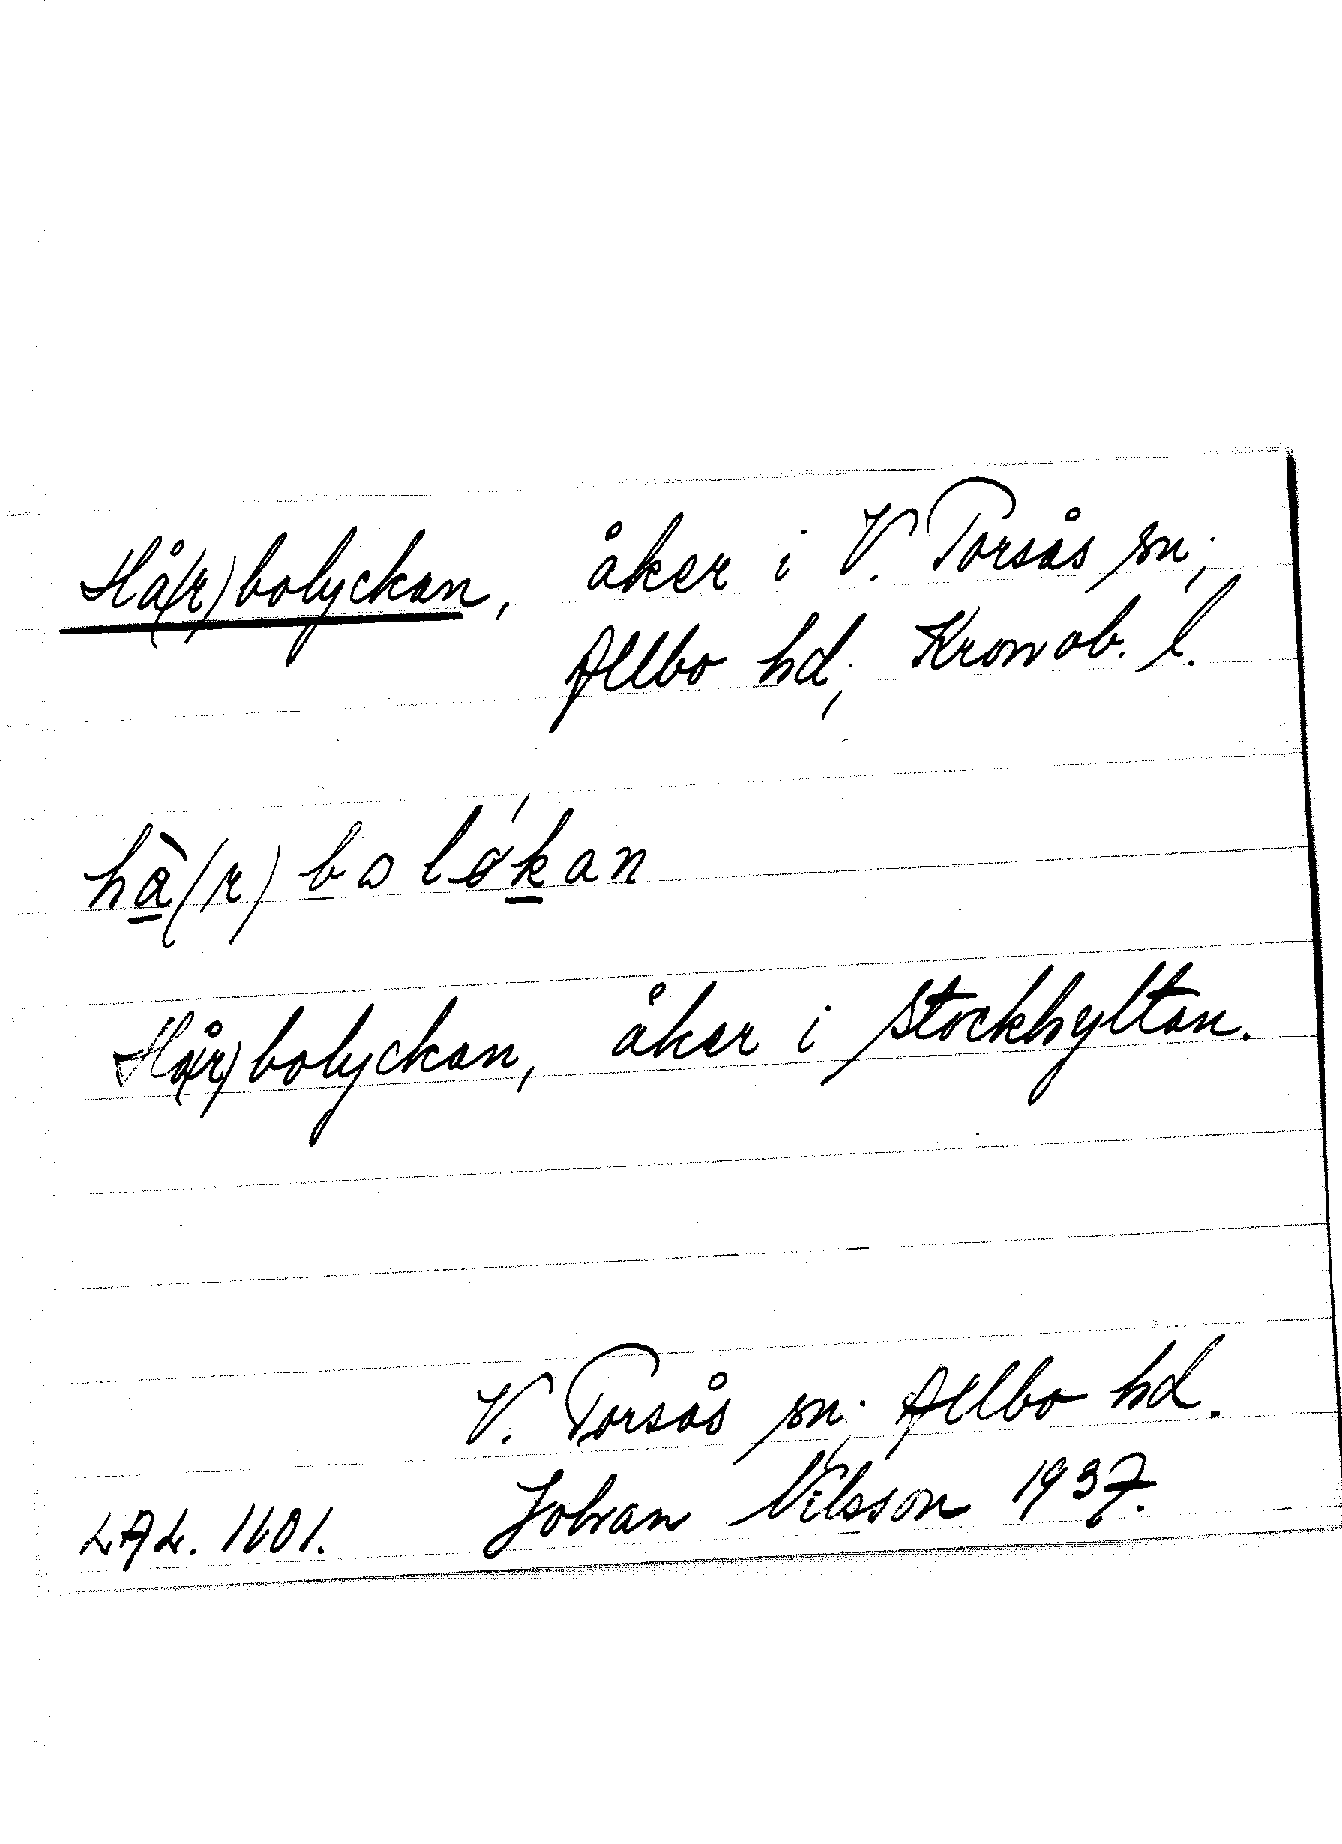 Hå(r)bolyckan, åker i V. Torsås sn,
Allbo hd, Kronob. l.
hà(r)boløkan
Hå(r)bolyckan, åker i Stockhyltan.
V. Torsås sn, Allbo hd.
LAL. 1601. Johan Nilsson 1937.